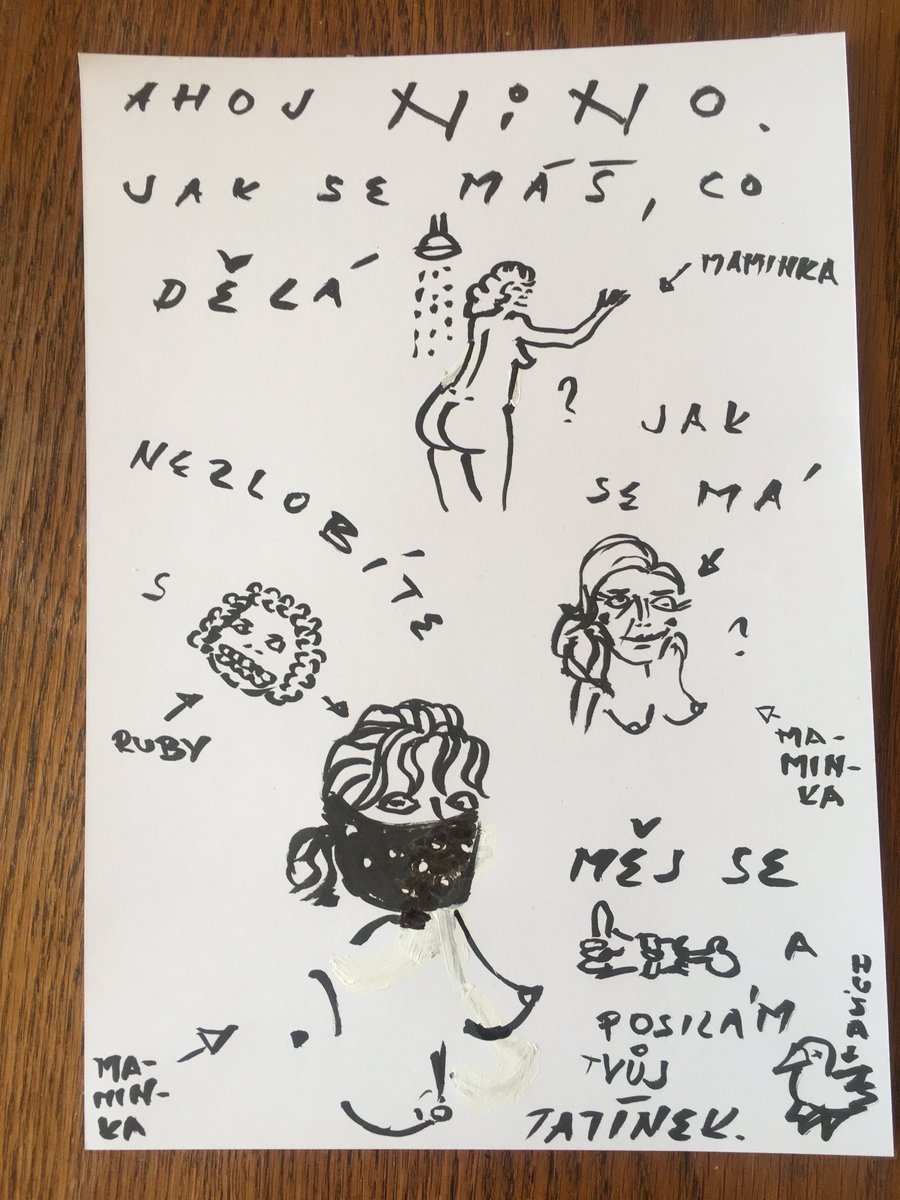 AHOJ NiNO.
JAK SE MÁŠ, CO
DĚLÁ
MAMINKA
?
JAK
SE MÁ
?
MA-
MIN-
KA
NEZLOBÍTE
S
RUBY
MA-
MIN-
KA
MĚJ SE
A
POSILÁM
TVŮJ
TATÍNEK.